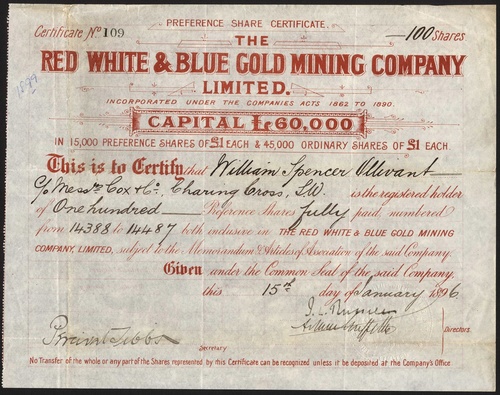 PREFERENCE SHARE CERTIFICATE.
Certificate No 109
100 Shares
THE
RED WHITE & BLUE GOLD MINING COMPANY
LIMITED.
1899
INCORPORATED UNDER THE COMPANIES ACTS 1862 TO 1890.
CAPITAL £60,000
IN 15,000 PREFERENCE SHARES OF £1 EACH & 45,000 ORDINARY SHARES OF £1 EACH
This is to Certify that William Spencer Ollivant
c/o Messrs Cox & Co. Charing Cross, S.W. is the registered holder
of One hundred Preference Shares fully paid, numbered
from 14388 to 14487 both inclusive in THE RED WHITE & BLUE GOLD MINING
COMPANY, LIMITED, subject to the Memorandum & Articles of Association of the said Company.
Given under the Common Seal of the said Company.
this 15th day of January 1896
Directors
Secretary
No Transfer of the whole or any part of the Shares represented by this Certificate can be recognized unless it be deposited at the Company's Office